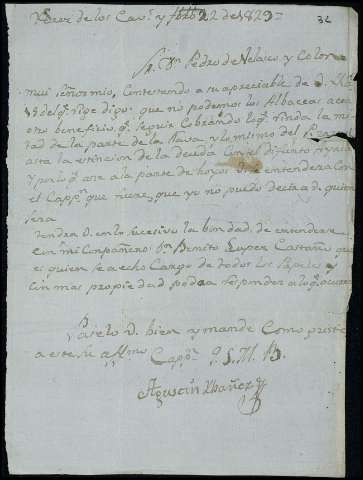 de los Cav.s y febb.o 22 de 1829
32
S.r D.n Pedro de Velasco y Colon
mui señor mio, Contestando a su apreciable de D.
18 del q.e rige digo: que no podemos los Albaceas acer
otro beneficio q.e seguir Cobrando lo q.e rinda la mi
tad de la parte de la Nava y lo mismo del
asta la estincion de la deuda Con el difunto
y por lo q.e ace a la parte de hoyos se entendera Con
el Capp.n que que yo no puedo decir a V. quien
sera
tendra V. en lo sucesivo la bondad de entenderse
Con mi Conpañero D.n Benito Lopez Castaño que
es quien se a echo Cargo de todos los Papeles y
Con mas propiedad podra responder a lo q.e ocurra
Paselo V. bien y mande Como guste
a este su aff.mo Capp.n Q. S. M. B.
Agustin Ybañez